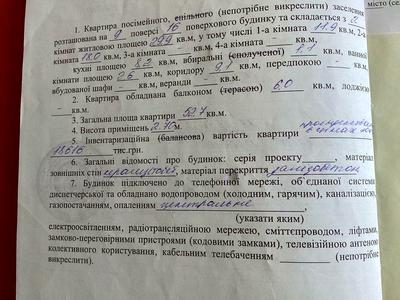 місто (се
1. Квартира посімейного, спільного (непотрібне викреслити) заселення
розташована на 9 поверсі 16 поверхового будинку та складається з 2
кімнат житловою площею 29,9 кв.м, у тому числі 1-а кімната 11,9 кв.м, 2-а
кімната 18,0 кв.м, 3-а кімната - кв.м, 4-а кімната - кв.м,
кухні площею 8,2 кв.м, вбиральні (сполученої) 1,1 кв.м, ванної
кімнати площею 2,6 кв.м, коридору 9,1 кв.м, передпокою - кв.м,
вбудованої шафи - кв.м, веранди - кв.м.
2. Квартира обладнана балконом (терасою) 6,0 кв.м, лоджією
- кв.м.
3. Загальна площа квартири 52,7 кв.м.
4. Висота приміщень 2.70 м.
5. Інвентаризаційна (балансова) вартість квартири
18616 тис.грн.
6. Загальні відомості про будинок: серія проекту, матеріал
зовнішніх стін, матеріал перекриття залізобетон
7. Будинок підключено до телефонної мережі, об'єднаної системи
диспетчерської та обладнано водопроводом (холодним, гарячим), каналізацією,
газопостачанням, опаленням центральне
(указати яким)
електроосвітленням, радіотрансляційною мережею, сміттєпроводом, ліфтами,
замково-переговорними пристроями (кодовими замками), телевізійною антеною
колективного користування, кабельним телебаченням (непотрібне
викреслити).